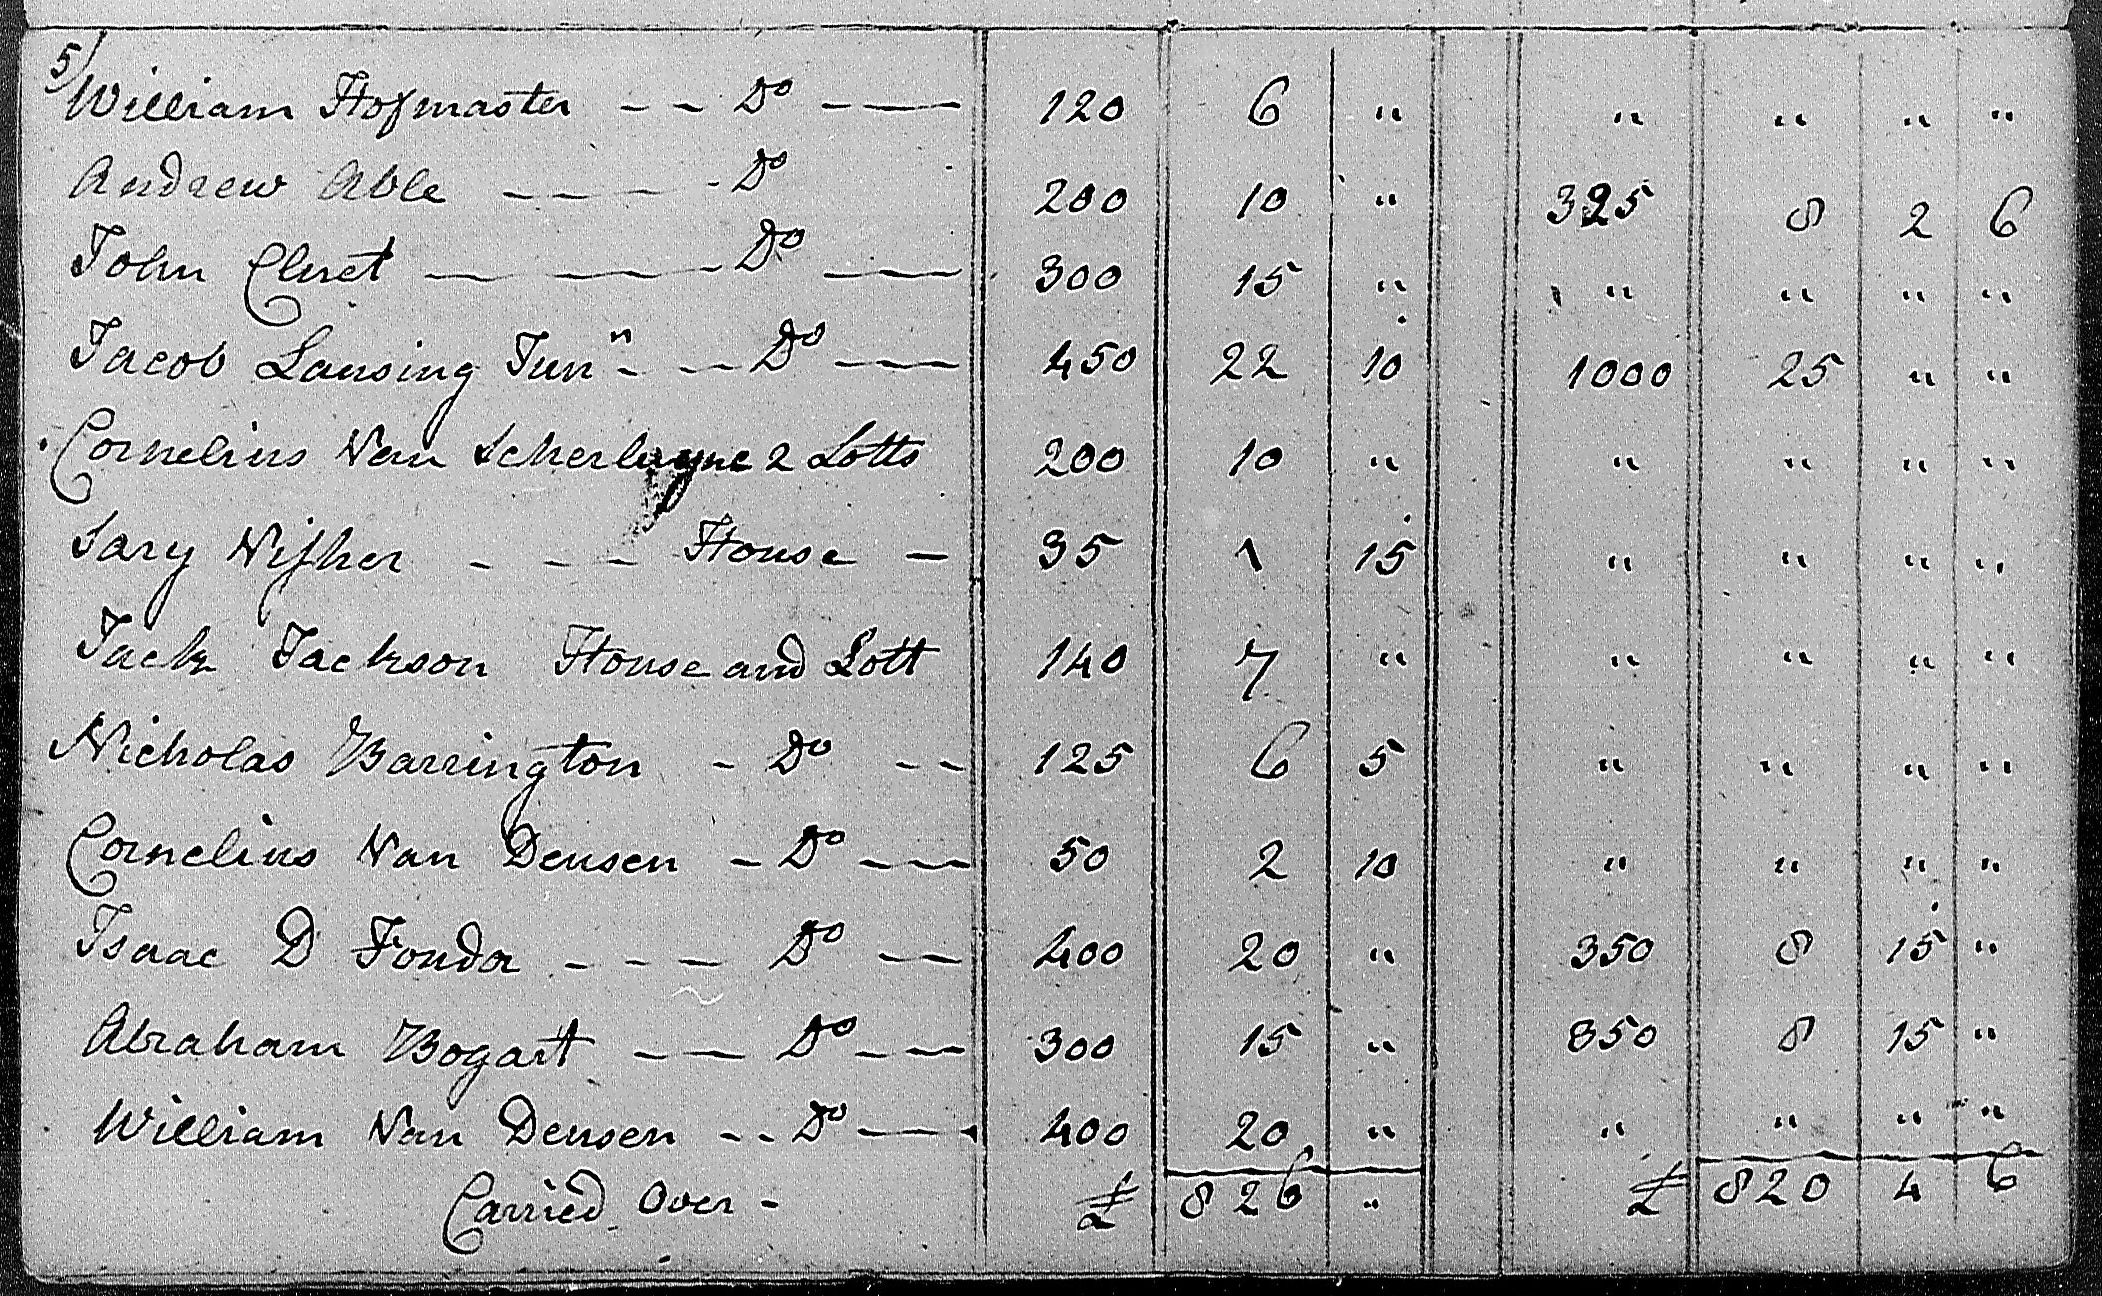 5/
William Hofmaster - - Do - — 120 6 " " " " "
Andrew Able - - - - Do 200 10 " 325 8 2 6
John Cluet — — - Do — 300 15 " " " " "
Jacob Lansing Junr - - Do — 450 22 10 1000 25 " "
Cornelius Van Scherluyne 2 Lotts 200 10 " " " " "
Sary Visher - - - House - 35 1 15 " " " "
Jack Jackson House and Lott 140 7 " " " " "
Nicholas Barrington - Do - - 125 6 5 " " " "
Cornelius Van Deusen - Do - — 50 2 10 " " " "
Isaac D Fonda - - - Do - - 400 20 " 350 8 15 "
Abraham Bogart - — Do - — 300 15 " 350 8 15 "
William Van Deusen - - Do — 400 20 " " " " "
Carried Over - £ 826 " £ 820 4 6